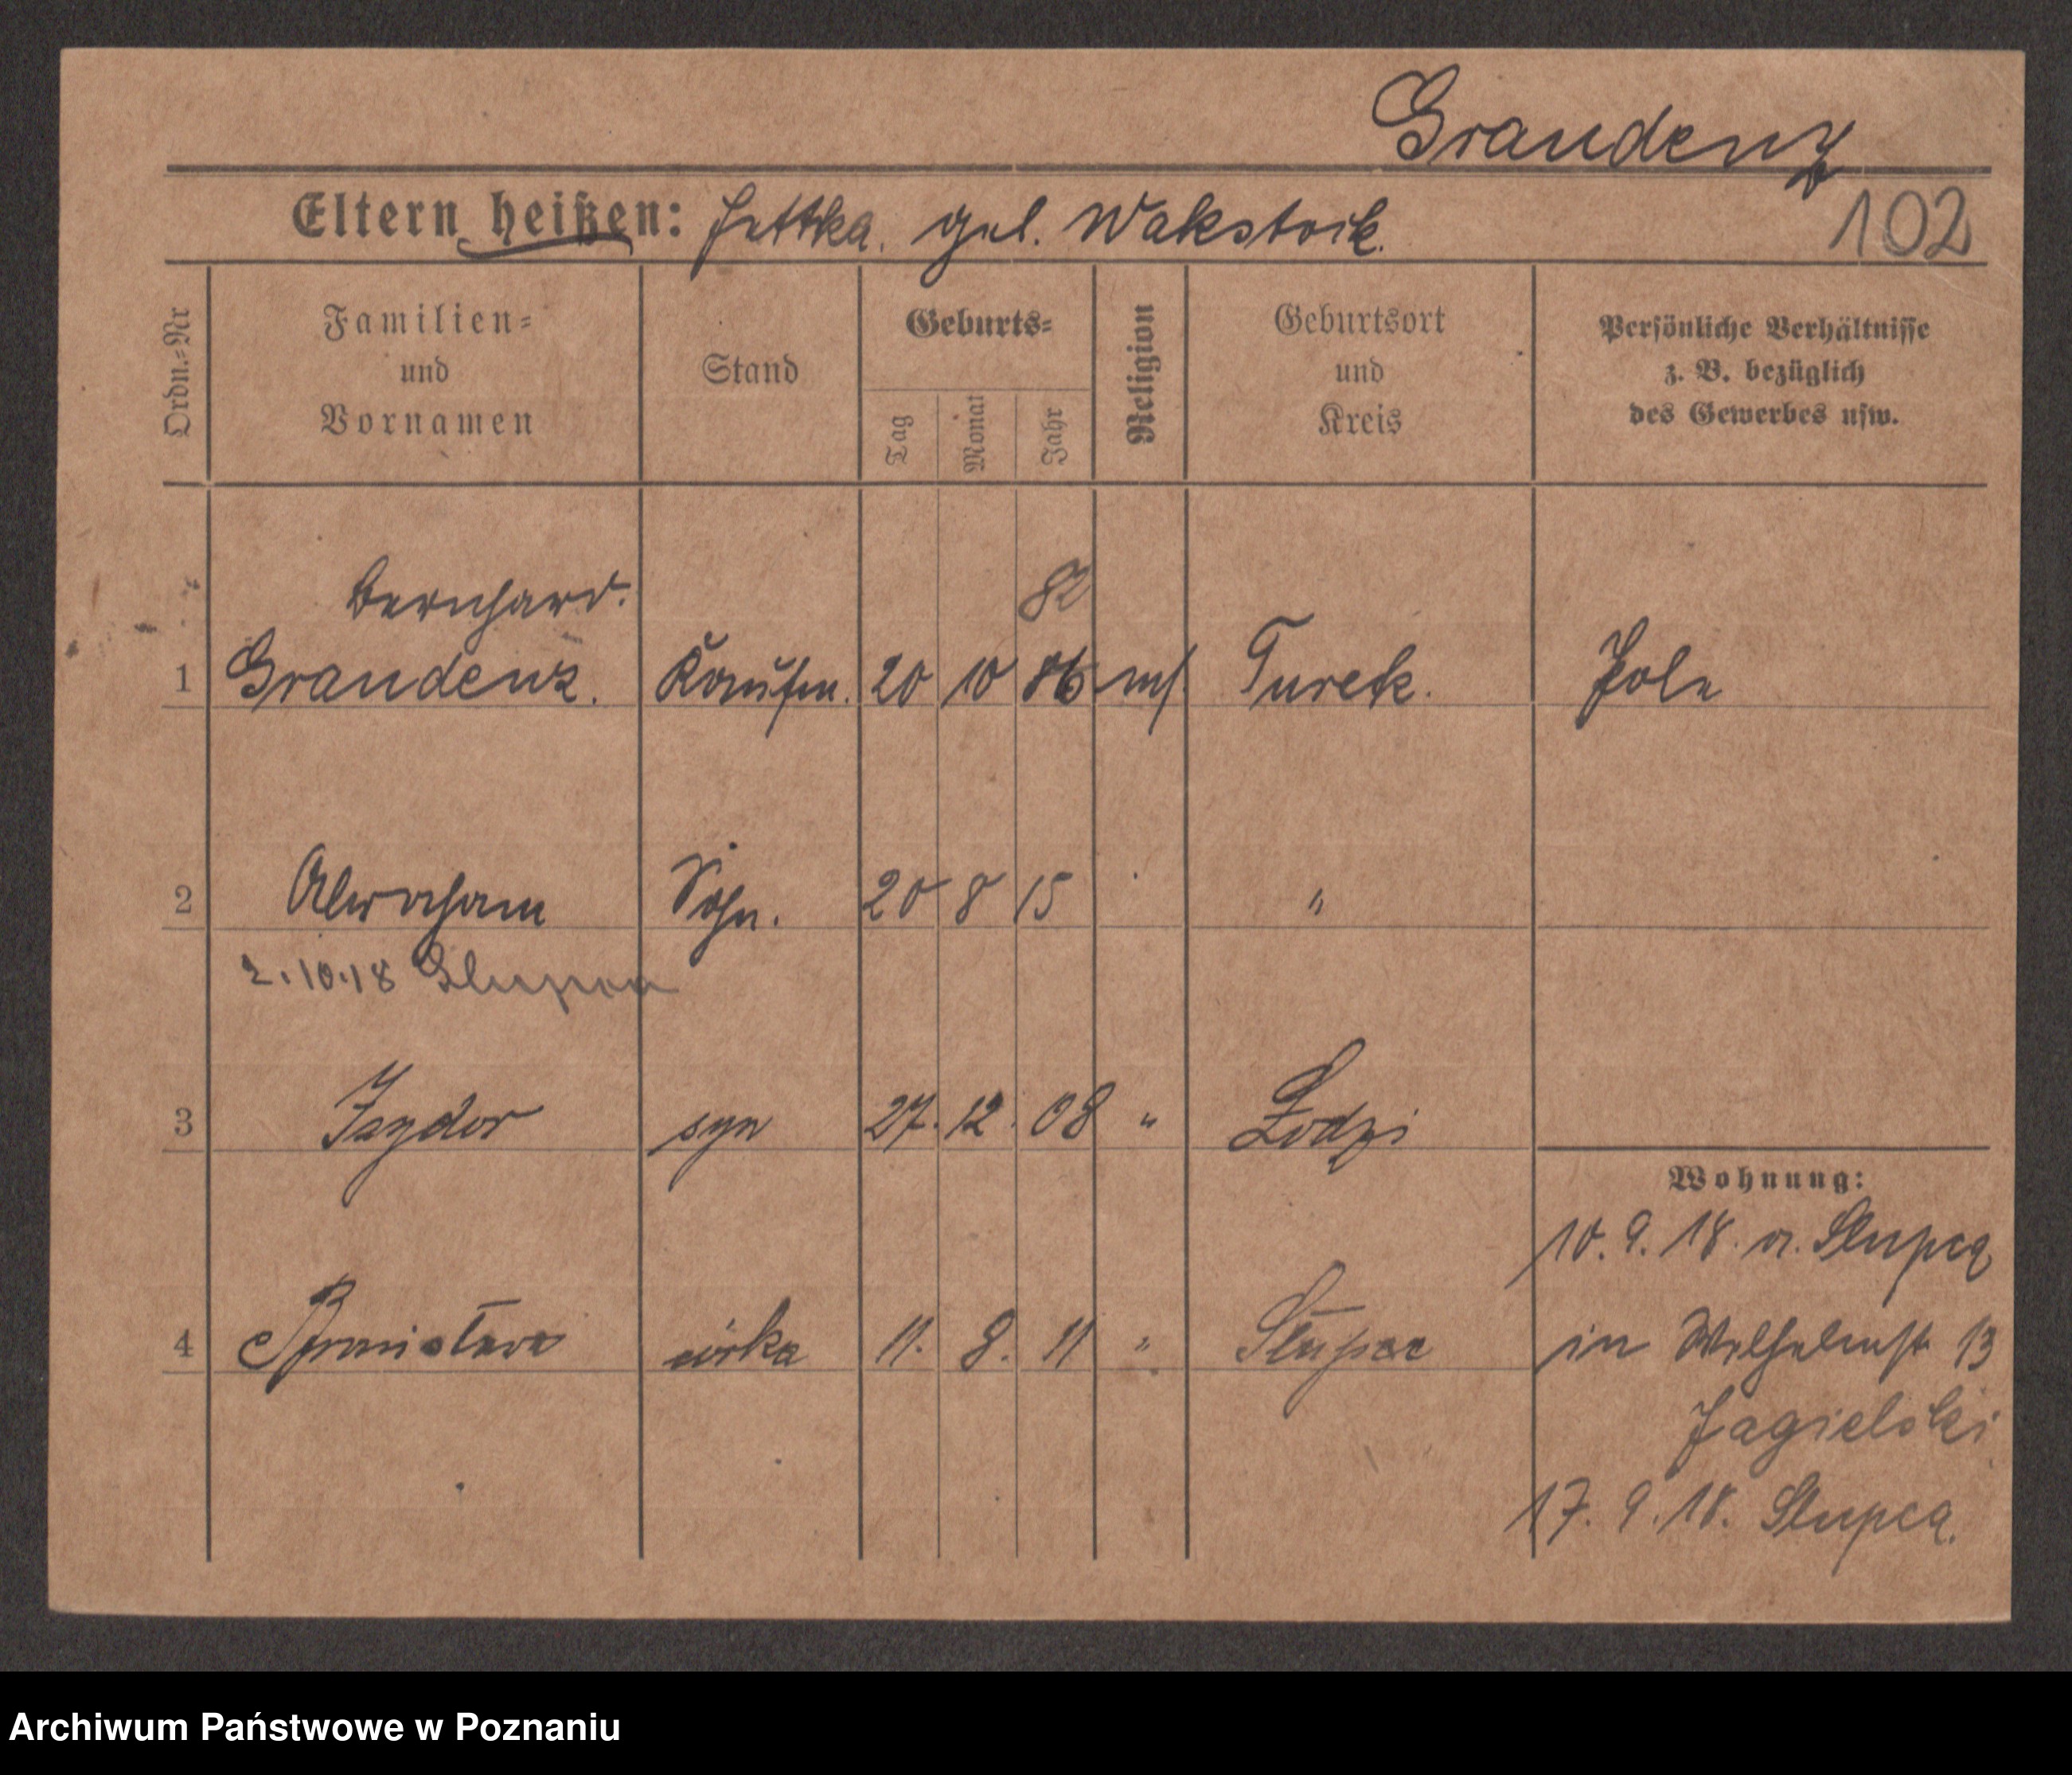 Graudenz
102
Eltern heißen: Jettka. geb. Wakstock.
Ordn.=Nr
Familien=
und
Vornamen
Stand
Geburts=
Tag
Monat
Jahr
Religion
Geburtsort
und
Kreis
Persönliche Verhältnisse
z. B. bezüglich
des Gewerbes usw.
Bernhard.
82
1 Graudenz. Kaufm. 20 10 86 ms. Turek. Pole
2 Abraham Sohn. 20 8 15 "
2.10.18 Slupca
3 Izydor syn 27. 12. 08 " Łodzi
Wohnung:
10. 9. 18. v. Slupca
4 Bronisława córka 11. 8. 11 " Słupca
in Wilhelmst 13
Jagielski
17. 9. 18. Slupca.
Archiwum Państwowe w Poznaniu